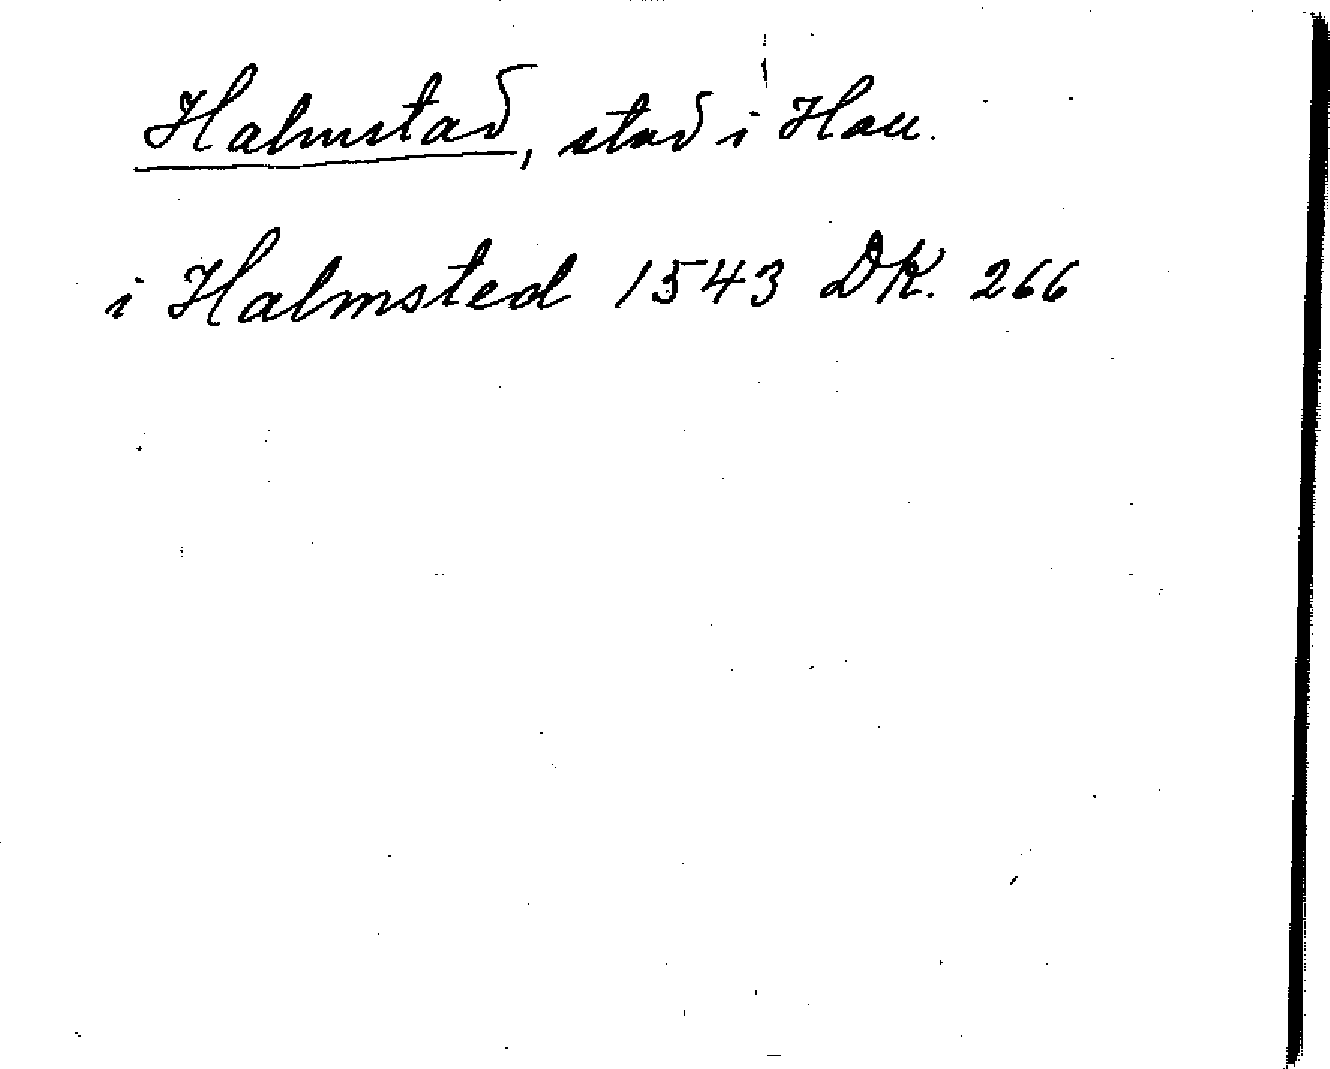 Halmstad, stad i Hall.
i Halmsted 1543 DK. 266